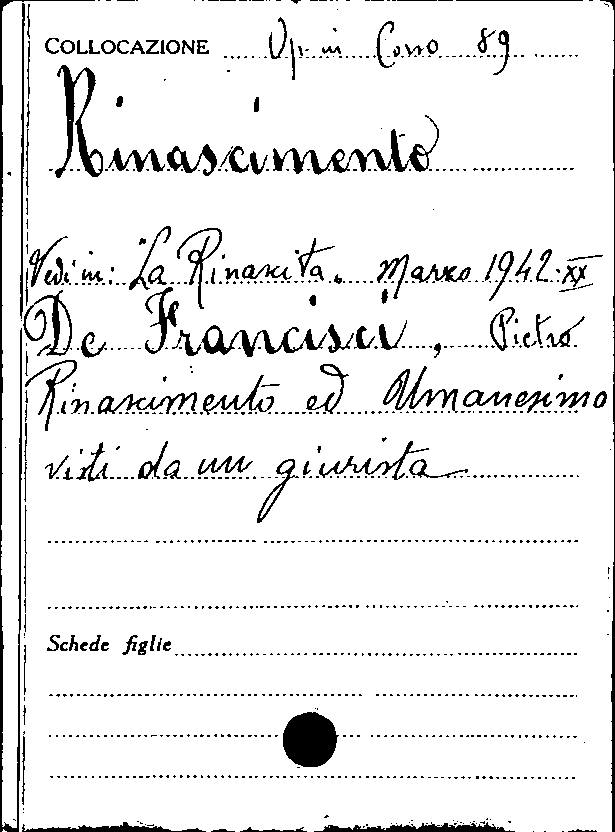 COLLOCAZIONE Op. in Corso 89
Rinascimento
Vedi in: "La Rinascita". Marzo 1942-XX
De Francisci, Pietro
Rinascimento ed Umanesimo
visti da un giurista
Schede figlie